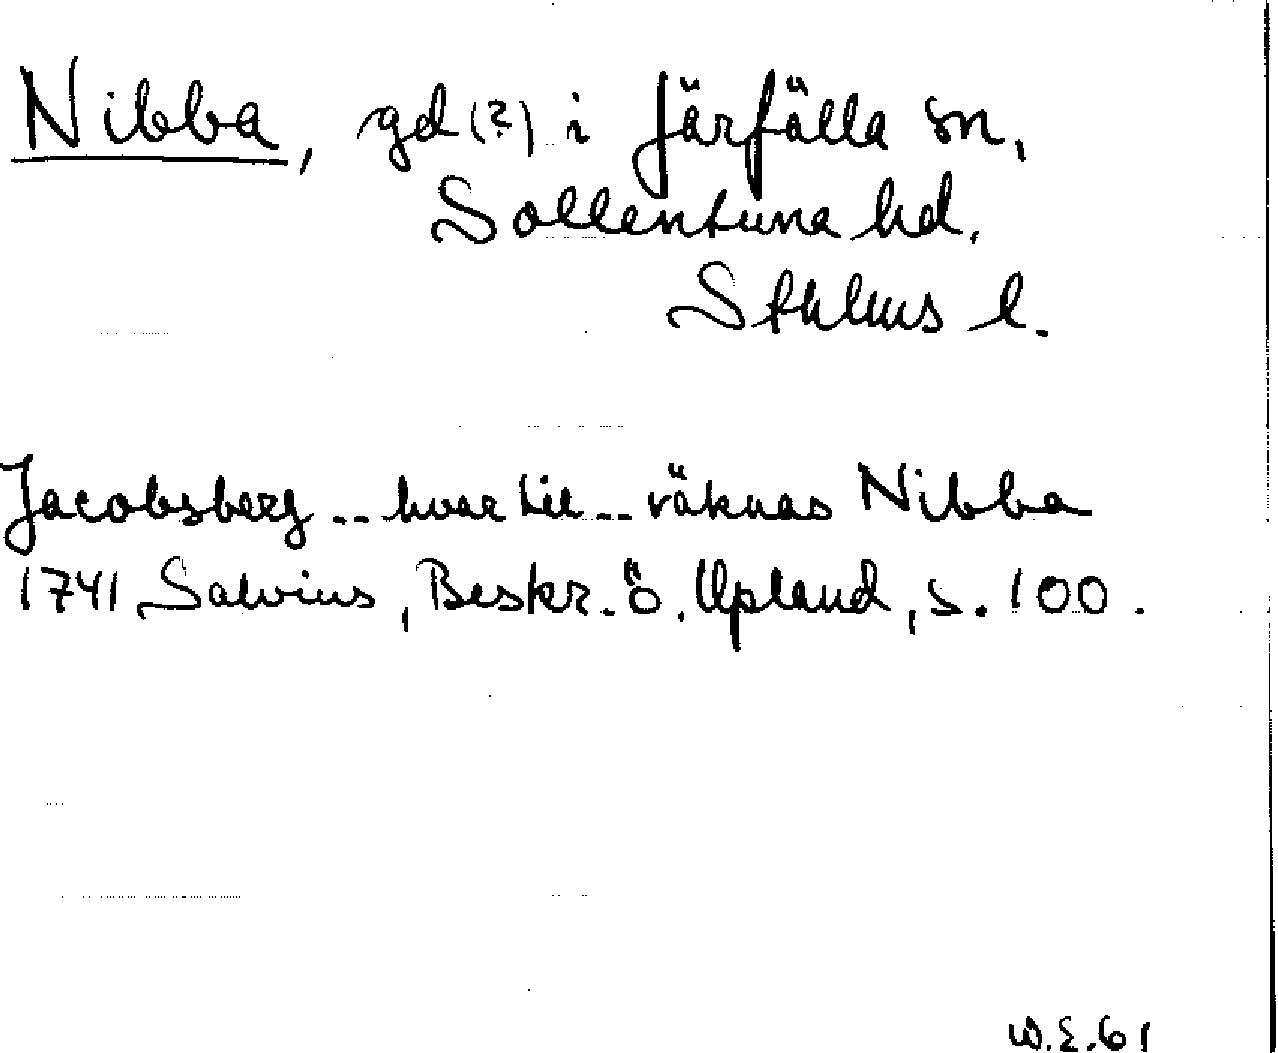 Nibba, gd (?) i Järfälla sn,
Sollentuna hd,
Sthlms l.
Jacobsberg .. hvar till .. räknas Nibba
1741 Salvius, Beskr. ö. Upland, s. 100.
W.E. 61